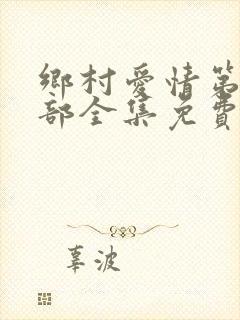 鄉村愛情第
部全集免費
辜波